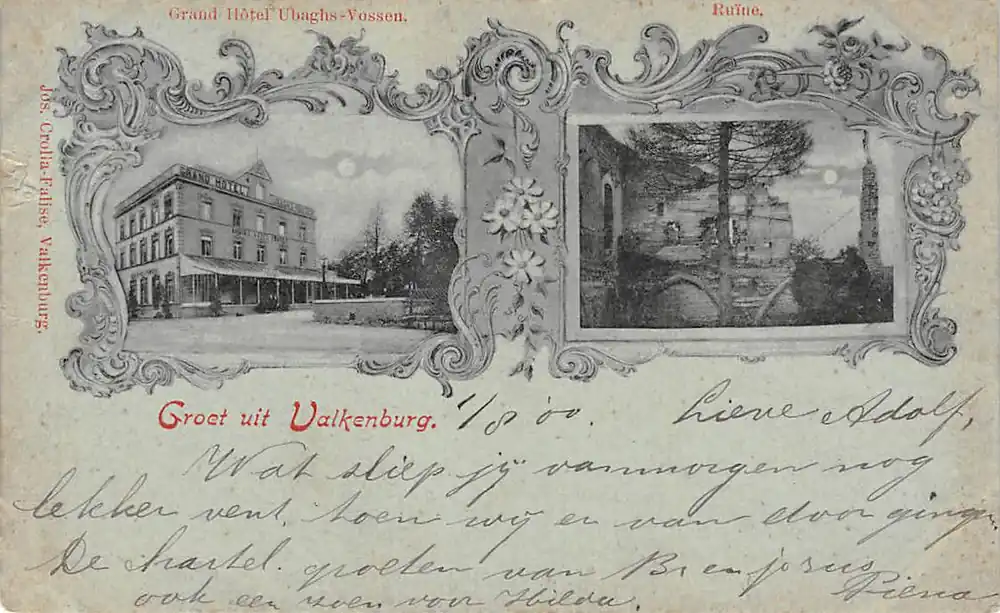 Grand Hôtel Ubaghs-Vossen.
Ruïne.
Jos. Crolla-Falise, Valkenburg.
GRAND HOTEL
Groet uit Valkenburg.
1/8 '00.
Lieve Adolf,
Wat sliep jij vanmorgen nog
lekker vent, toen wij er van door ging
De hartel. groeten van B en
ook een zoen voor Hilda.